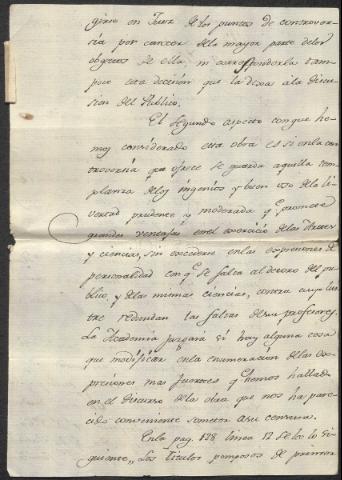 girse en Juez de los puntos de controver-
sia por carecer dela mayor parte delos
objetos de ella, ni corresponderla tam-
poco esta decision que la dexa ála discu-
sion del Publico.
El segundo aspecto conque he-
mos considerado esta obra es si enla con-
troversia que ofrece se guarda aquella tem-
planza delos ingenios y buen uso dela li-
vertad prudente y moderada q.e promete
grandes ventajas en el exercicio delas Artes
y ciencias, sin excederse en las expresiones de
personalidad con q.e se falta al decoro del pu-
blico, y delas mismas ciencias, contra cuyo lus-
tre redundan las faltas desus profesores.
La Academia juzgará si hay alguna cosa
que modificar enla enumeracion delas ex-
presiones mas fuertes q.e hemos hallado
en el discurso dela obra que nos ha pare-
cido conveniente someter asu censura.
Enla pag. 128 linea 12 se lee lo si-
guiente,, Los titulos pomposos de primer